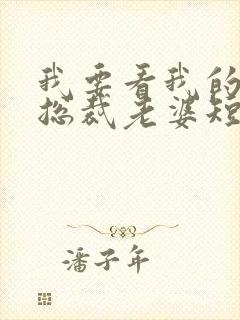 我要看我的
总裁老婆短
潘子年